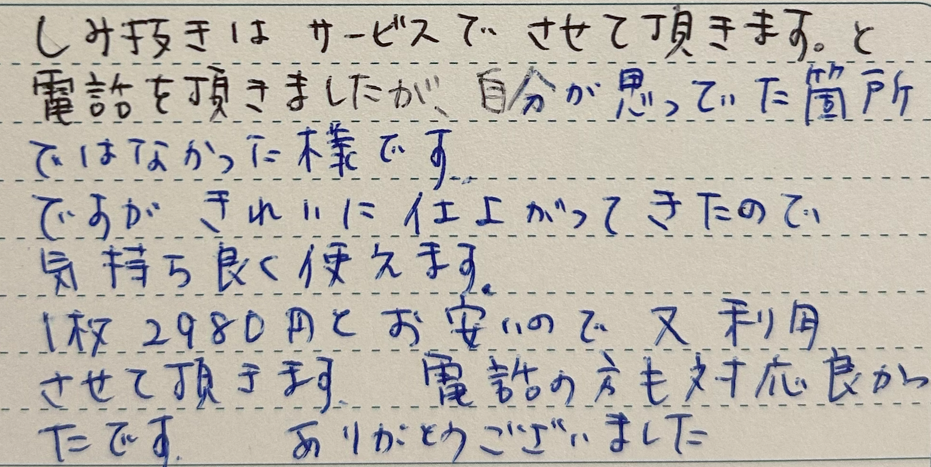 しみ抜きは サービスで させて頂きます。と
電話を頂きましたが、自分が思っていた箇所
ではなかった様です。
ですが きれいに 仕上がってきたので
気持ち良く使えます。
1枚 2980円と お安いので 又 利用
させて頂きます 電話の方も対応良かっ
たです。 ありがとうございました